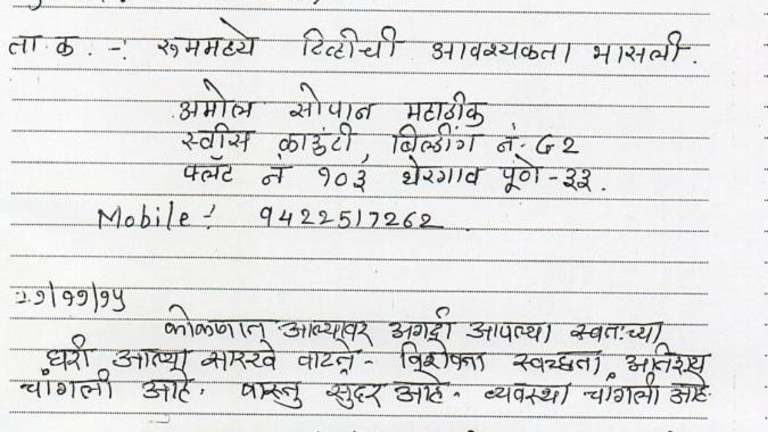 ता.क. -: रुममध्ये टिव्हीची आवश्यकता भासली.
अमोल सोपान महाडीक
स्वीस काऊंटी, बिल्डींग नं. G2
फ्लॅट नं १०३ थेरगाव पूणे-३३.
Mobile: 9422517262
२१/११/१५
कोकणात आल्यावर अगदी आपल्या स्वतःच्या
घरी आल्या सारखे वाटते. विशेषता स्वच्छता अतिशय
चांगली आहे. वास्तु सुंदर आहे. व्यवस्था चांगली आहे.